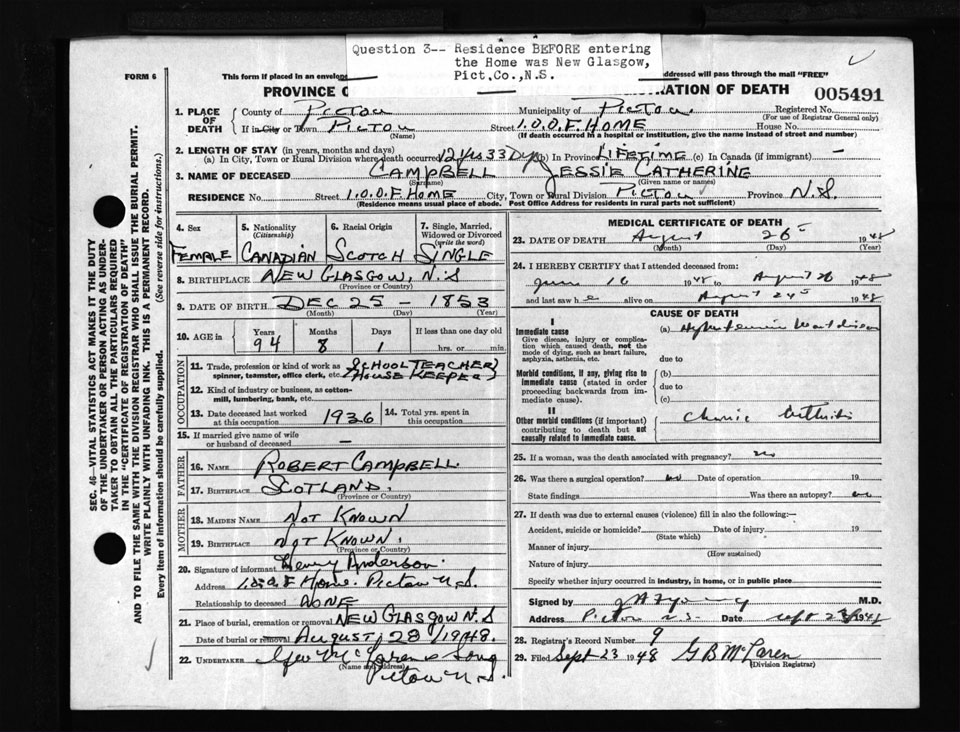 Question 3-- Residence BEFORE entering
the Home was New Glasgow,
Pict.Co.,N.S.
FORM 6
This form if placed in an envelope
addressed will pass through the mail "FREE"
PROVINCE
RATION OF DEATH
005491
1. PLACE OF DEATH
County of PICTOU Municipality of PICTOU. Registered No.
(For use of Registrar General only)
If in City or Town PICTOU Street I.O.O.F. HOME House No.
(Name) (If death occurred in a hospital or institution, give the name instead of street and number)
2. LENGTH OF STAY (in years, months and days)
(a) In City, Town or Rural Division where death occurred 12 Yrs 33 Dys (b) In Province LIFETIME (c) In Canada (if immigrant) —
3. NAME OF DECEASED CAMPBELL JESSIE CATHERINE
(Surname) (Given name or names)
RESIDENCE No. Street I.O.O.F. HOME City, Town or Rural Division PICTOU Province N.S.
(Residence means usual place of abode. Post Office Address for residents in rural parts not sufficient)
4. Sex
FEMALE
5. Nationality
(Citizenship)
CANADIAN
6. Racial Origin
SCOTCH
7. Single, Married,
Widowed or Divorced
(write the word)
SINGLE
8. BIRTHPLACE NEW GLASGOW, N.S
(Province or Country)
9. DATE OF BIRTH DEC 25 - 1853
(Month) (Day) (Year)
10. AGE in
Years Months Days If less than one day old
94 8 1 hrs. or min.
OCCUPATION
11. Trade, profession or kind of work as
spinner, teamster, office clerk, etc.
SCHOOL TEACHER
HOUSE KEEPER
12. Kind of industry or business, as cotton-
mill, lumbering, bank, etc.
13. Date deceased last worked
at this occupation 1936
14. Total yrs. spent in
this occupation
15. If married give name of wife
or husband of deceased —
FATHER
16. NAME ROBERT CAMPBELL.
17. BIRTHPLACE SCOTLAND.
(Province or Country)
MOTHER
18. MAIDEN NAME NOT KNOWN
19. BIRTHPLACE NOT KNOWN.
(Province or Country)
20. Signature of informant Henry Anderson
Address I.O.O.F Home. Pictou N.S.
Relationship to deceased NONE
21. Place of burial, cremation or removal NEW GLASGOW N.S
Date of burial or removal AUGUST 28/1948.
22. UNDERTAKER Geo McLaren & Song
(Name and address)
Pictou N.S.
MEDICAL CERTIFICATE OF DEATH
23. DATE OF DEATH August 26 1948
(Month) (Day) (Year)
24. I HEREBY CERTIFY that I attended deceased from:
June 16 1948 to August 26 1948
and last saw h e alive on August 24 1948
CAUSE OF DEATH
I
Immediate cause
Give disease, injury or compli-
cation which caused death, not the
mode of dying, such as heart failure,
asphyxia, asthenia, etc.
(a)
due to
Morbid conditions, if any, giving rise to
immediate cause (stated in order
proceeding backwards from im-
mediate cause).
(b)
due to
(c)
II
Other morbid conditions (if important)
contributing to death but not
causally related to immediate cause.
25. If a woman, was the death associated with pregnancy? no
26. Was there a surgical operation? no Date of operation 19
State findings Was there an autopsy? no
27. If death was due to external causes (violence) fill in also the following:—
Accident, suicide or homicide? Date of injury 19
(State which)
Manner of injury
(How sustained)
Nature of injury
Specify whether injury occurred in industry, in home, or in public place
Signed by M.D.
Address Pictou N.S. Date Sept 1948
28. Registrar's Record Number 9
29. Filed Sept 23 1948 G B McLaren
(Division Registrar)
SEC. 46—VITAL STATISTICS ACT MAKES IT THE DUTY
OF THE UNDERTAKER OR PERSON ACTING AS UNDER-
TAKER TO OBTAIN ALL THE PARTICULARS REQUIRED
IN THE "CERTIFICATE OF REGISTRATION OF DEATH"
AND TO FILE THE SAME WITH THE DIVISION REGISTRAR WHO SHALL ISSUE THE BURIAL PERMIT.
WRITE PLAINLY WITH UNFADING INK. THIS IS A PERMANENT RECORD.
Every item of information should be carefully supplied. (See reverse side for instructions.)